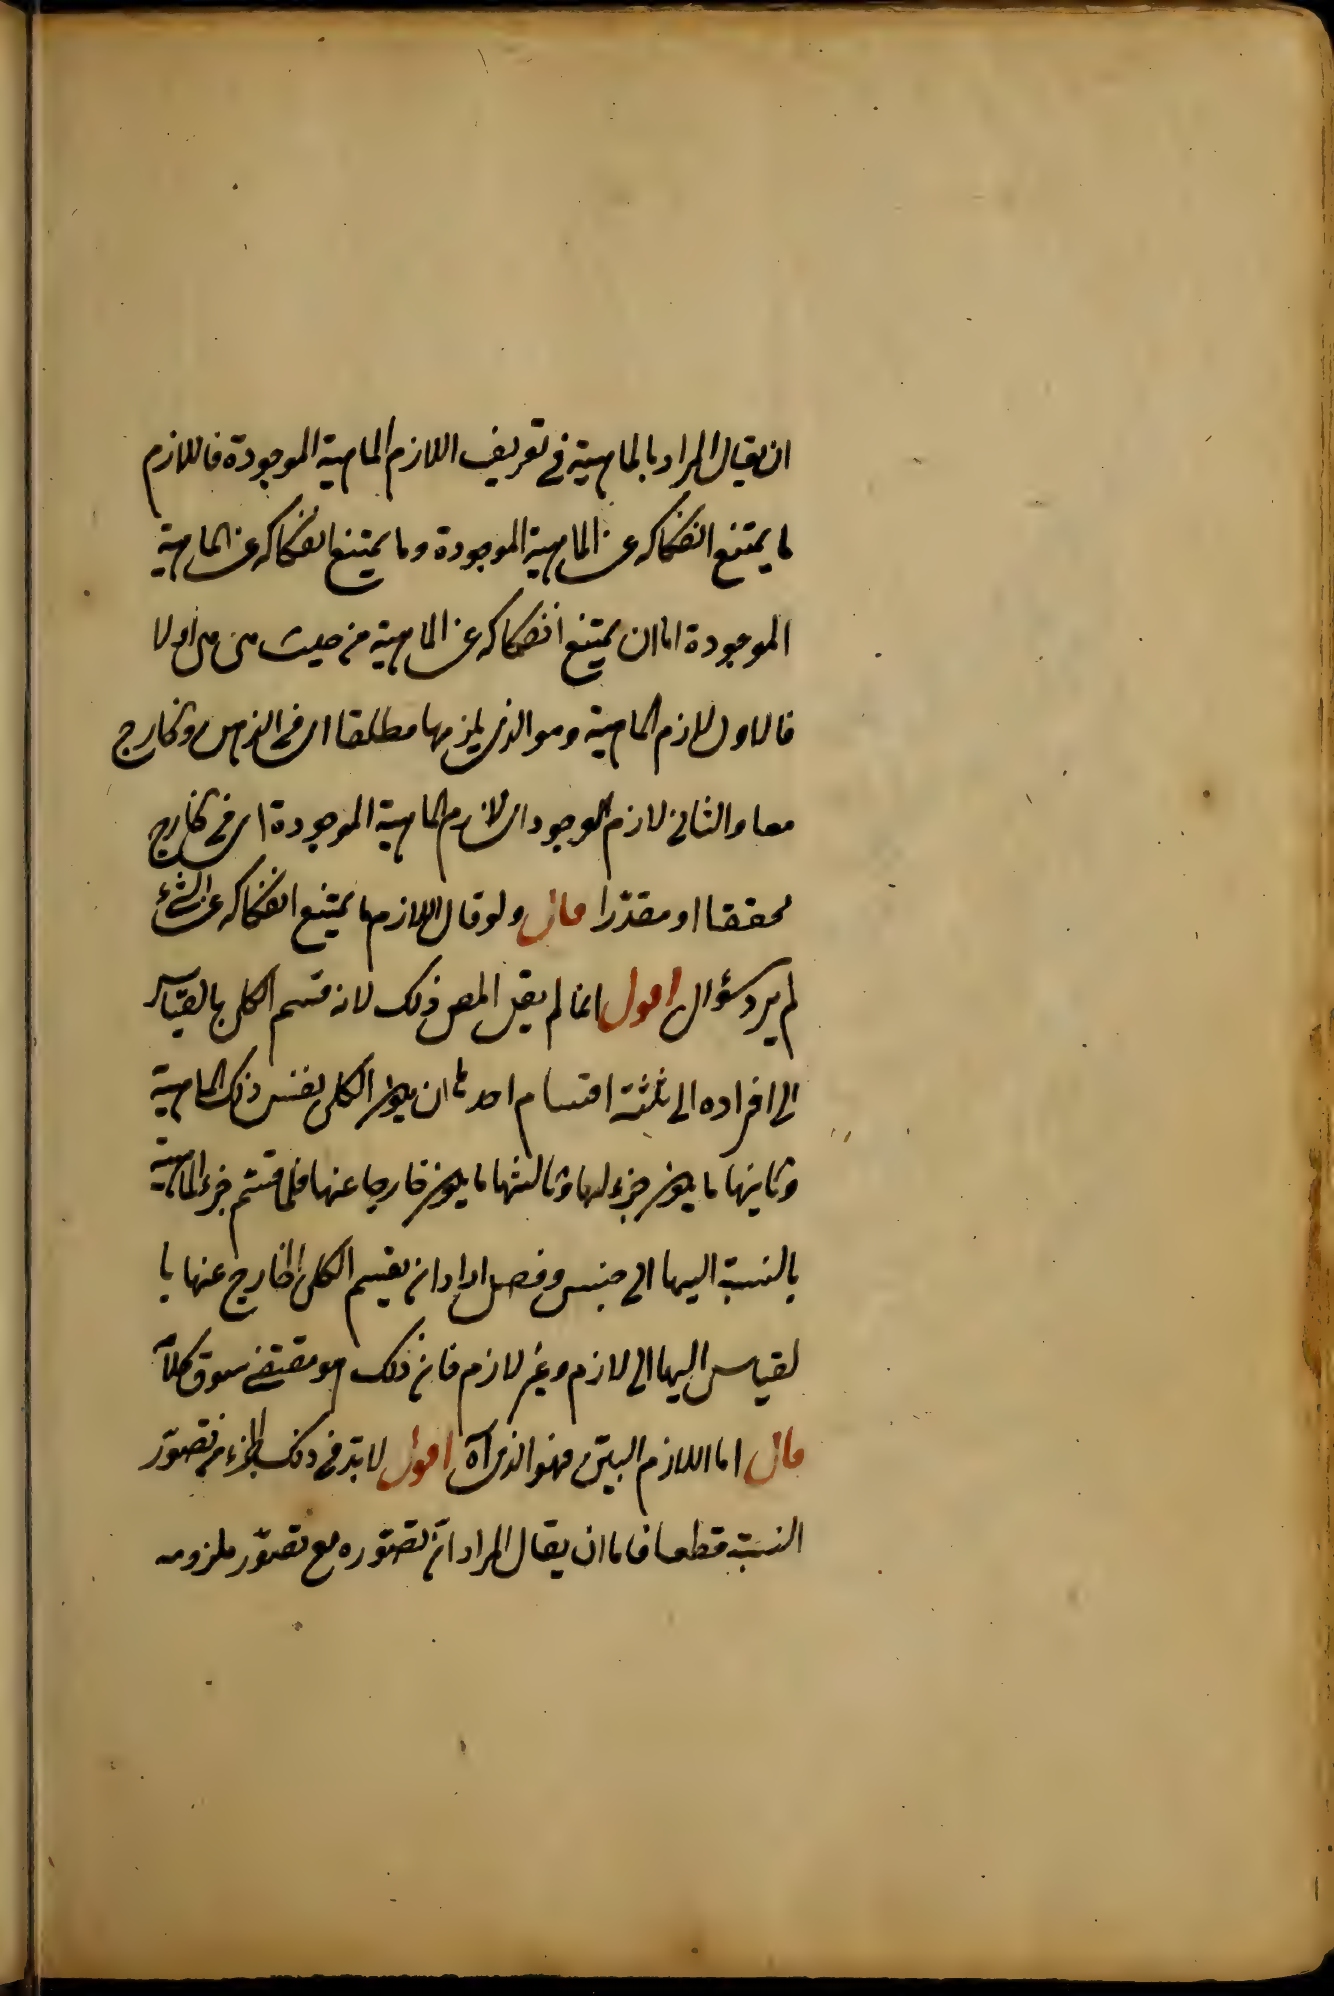 ان يقال المراد بالماهية في تعريف اللازم الماهية الموجودة فاللازم
ما يمتنع انفكاكه عن الماهية الموجودة وما يمتنع انفكاكه عن الماهية
الموجودة اما ان يمتنع انفكاكه عن الماهية من حيث هي هي او لا
فالاول لازم الماهية وهو الذي يلزمها مطلقا اى في الذهن والخارج
معا والثاني لازم الوجود اى لازم الماهية الموجودة اى في الخارج
محققا او مقدّرا قال ولو قال اللازم ما يمتنع انفكاكه عن الشئ
لم يرد سؤال اقول انما لم يقل المص ذلك لانه قسم الكلى بالقياس
الى افراده الى ثلثة اقسام احدها ان يكون الكلى نفس ذلك الماهية
وثانيها ما يكون جزء لها وثالثها ما يكون خارجا عنها فلما قسّم جزء الماهية
بالنسبة اليها الى جنس وفصل اراد ان يقسم الكلى الخارج عنها با
لقياس اليها الى لازم وغير لازم فان ذلك هو مقتضى سوق كلامه
قال اما اللازم البيّن فهو الذى آه اقول لا بدّ في ذلك الجزء من تصوّر
النسبة قطعا فاما ان يقال المراد انّ تصوّره مع تصوّر ملزومه